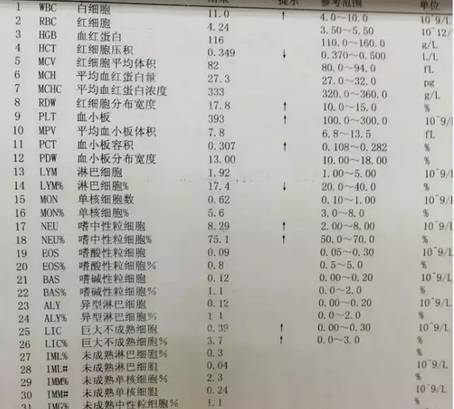 结果 提示 参考范围 单位
1 WBC 白细胞 11.0 ↑ 4.0~10.0 10^9/L
2 RBC 红细胞 4.24 3.50~5.50 10^12/
3 HGB 血红蛋白 116 110.0~160.0 g/L
4 HCT 红细胞压积 0.349 ↓ 0.370~0.500 L/L
5 MCV 红细胞平均体积 82 80.0~94.0 fL
6 MCH 平均血红蛋白量 27.3 27.0~32.0 pg
7 MCHC 平均血红蛋白浓度 333 320.0~360.0 g/L
8 RDW 红细胞分布宽度 17.8 ↑ 10.0~15.0 %
9 PLT 血小板 393 ↑ 100.0~300.0 10^9/L
10 MPV 平均血小板体积 7.8 6.8~13.5 fL
11 PCT 血小板容积 0.307 ↑ 0.108~0.282 %
12 PDW 血小板分布宽度 13.00 10.00~18.00 %
13 LYM 淋巴细胞 1.92 1.00~5.00 10^9/L
14 LYM% 淋巴细胞% 17.4 ↓ 20.0~40.0 %
15 MON 单核细胞数 0.62 0.10~1.00 10^9/
16 MON% 单核细胞% 5.6 3.0~8.0 %
17 NEU 嗜中性粒细胞 8.29 ↑ 2.00~8.00 10^9/
18 NEU% 嗜中性粒细胞% 75.1 ↑ 50.0~70.0 %
19 EOS 嗜酸性粒细胞 0.09 0.05~0.30 10^9/L
20 EOS% 嗜酸性粒细胞% 0.8 0.5~5.0 %
21 BAS 嗜碱性粒细胞 0.12 0.00~0.20 10^9/L
22 BAS% 嗜碱性粒细胞% 1.1 0.0~2.0 %
23 ALY 异型淋巴细胞 0.12 0.00~0.20 10^9/L
24 ALY% 异型淋巴细胞% 1.1 0.0~2.0 %
25 LIC 巨大不成熟细胞 0.39 ↑ 0.00~0.30 10^9/L
26 LIC% 巨大不成熟细胞% 3.7 ↑ 0.0~3.0 %
27 IML% 未成熟淋巴细胞% 0.3 %
28 IML# 未成熟淋巴细胞 0.04 10^9/L
29 IMM% 未成熟单核细胞% 2.3 %
30 IMM# 未成熟单核细胞 0.24 10^9/L
31 IMG% 未成熟中性粒细胞% 1.1 %